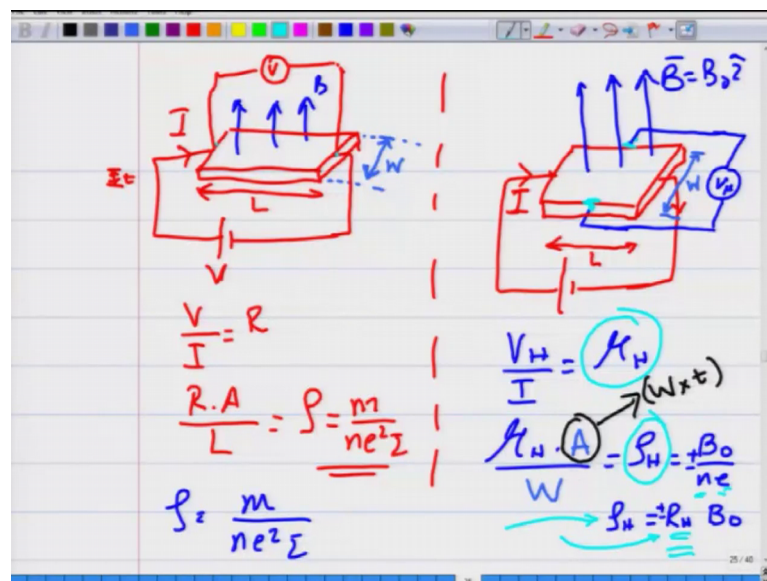 V
B
I
W
L
V
V/I = R
R.A/L = ρ = m/ne²Σ
ρ = m/ne²Σ
B̄ = B₀ẑ
W
V_H
I
L
V_H/I = ℛ_H
(W×t)
ℛ_H · A/W = ρ_H = ±B₀/ne
ρ_H = ±R_H B₀
25 / 40